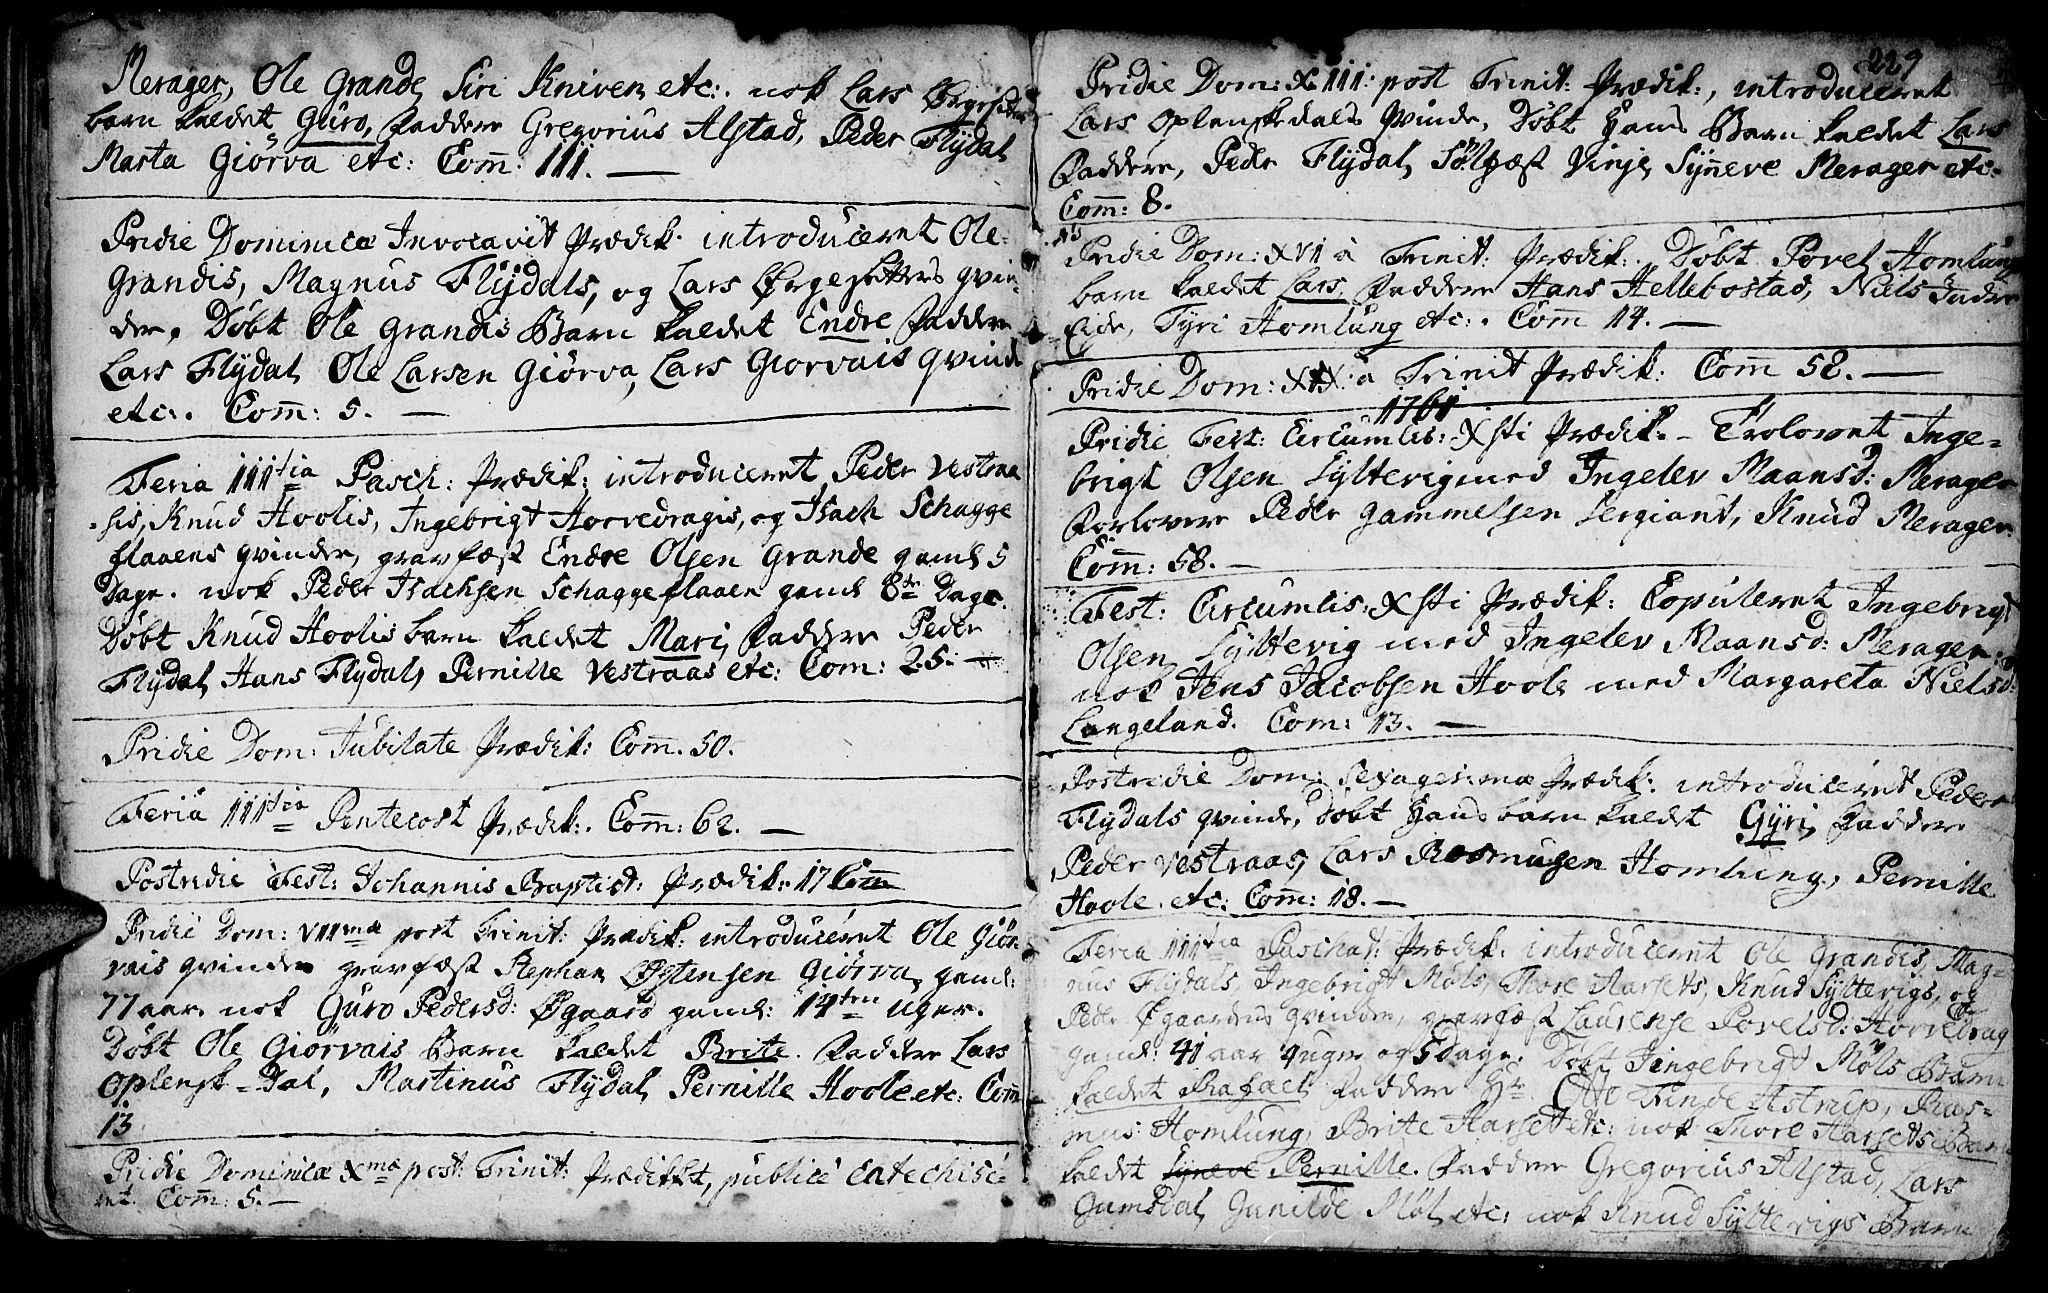 Merager, Ole Grande, Siri Kniven etc:. nok Lars Ørgersetters
barn kaldet Guro, Faddere Gregorius Alstad, Peder Flydal
Marta Giørva etc: Com: 111.
Pridie Dominicæ Invocavit Prædik. introduceret Ole
Grandis, Magnus Flÿdals, og Lars Ørgesetters qvin-
der, Døbt Ole Grandis Barn kaldet Endre Faddere
Lars Flÿdal, Ole Larsen Giørva, Lars Giørvais qvinde
etc:. Com: 5.
Feria III tia Pasch: Prædik: introduceret Peder Vestraa-
sis, Knud Hoolis, Ingebrigt Horvedragis, og Isach Schagge
flaaens qvinder, gravfæst Endre Olsen Grande gaml 5
Dage. nok Peder Isachsen Schaggeflaaen gaml 8te Dage.
Døbt Knud Hoolis barn kaldet Mari, Faddere Peder
Flÿdal, Hans Flÿdal, Pernille Vestraas etc: Com: 25.
Pridie Dom: Jubilate Prædik: Com. 50.
Feria III tia Pentecost Prædik:. Com: 62.
Postridie Fest: Johannis Baptist: Prædik: 17 Com
Pridie Dom: VII ma post Trinit: Prædik: introduceret Ole Giør
vais qvinde gravfæst Stephan Østensen Giørva, gaml:
77 aar. nok Guro Pedersd: Øgaard gaml: 14ten Uger.
Døbt Ole Giørvais Barn kaldet Brite. Faddere Lars
Oplensk-Dal, Martinus Flÿdal, Pernille Hoole etc: Com
13.
Pridie Dominicæ X mæ post: Trinit: Prædikket, publicè catechise-
ret. Com: 5.
229
Pridie Dom: XIII: post Trinit: Prædik:, introduceret
Lars Oplenskedals Qvinde, Døbt Hans Barn kaldet Lars
Faddere, Peder Flÿdal, Sølfæst Vinje, Sÿneve Merager etc.
Com: 8.
Pridie Dom: XVI à Trinit: Prædik:. Døbt Povel Homlung
barn kaldet Lars, Faddere Hans Hellebostad, Niels Indre
Eide, Gyri Homlung etc:. Com 14.
Pridie Dom: XIX: à Trinit Prædik: Com 58.
1761
Pridie Fest: Circumcis: Xsti Prædik. Trolovet Inge-
brigt Olsen Sÿltevig med Ingelev Maansd: Merager
Forlovere Peder Gammelsen Sergiant, Knud Merager.
Com: 58.
Fest: Circumcis: Xsti Prædik: Copuleret Ingebrigt
Olsen Sÿltevig med Ingelev Maansd: Merager,
nok Jens Jacobsen Hoole med Margareta Nielsd:
Langeland. Com: 13.
Postridie Dom: Sexagesimæ Prædik: introduceret Peder
Flÿdals qvinde, Døbt Hans barn kaldet Gÿri, Faddere
Peder Vestraas, Lars Rasmusen Homlung, Pernille
Hoole. etc: Com: 18.
Feria III tia Paschat: Prædik: introduceret Ole Grandis, Mag-
nus Flÿdals, Ingebrigt Møls, Thore Harsets, Knud Sÿltevigs, og
Peder Øgaardens qvinder, gravfæst Laurense Povelsd: Horvedrag
gaml: 41 aar 4 uger og 5 dage. Døbt Jngebrigt Møls Barn
kaldet Rafael, Faddere Hr. Ole Finde Astrup, Ras-
mus Homlung, Brite Harset etc: nok Thore Harsets Barn
kaldet Sÿneve Pernille. Faddere Gregorius Alstad, Lars
Gumsdal, Gunilde Møl, etc: nok Knud Sÿltevigs Barn